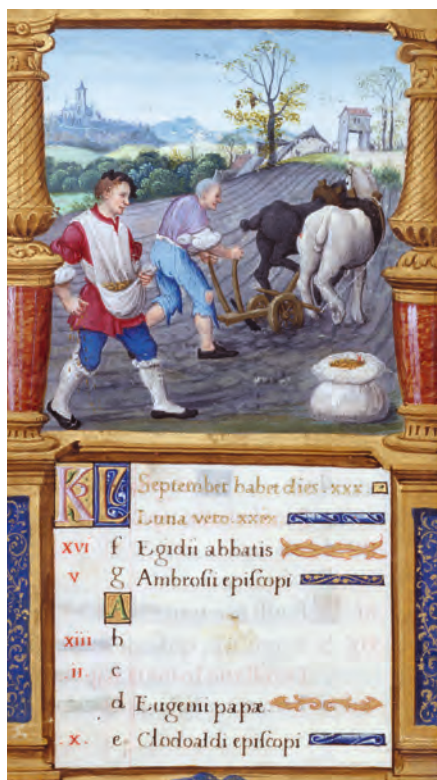 KL September habet dies .xxx.
Luna vero .xxix
xvi f Egidii abbatis
v g Ambrosii episcopi
A
xiii b
ii c
d Eugenii papæ
x. e Clodoaldi episcopi